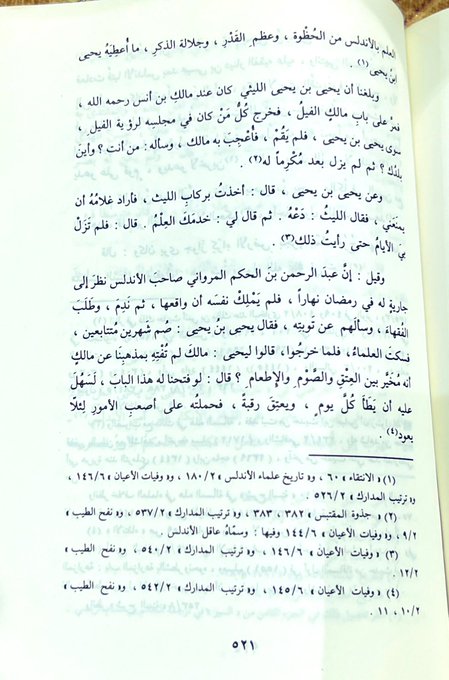 العلم بالأندلس من الحُظْوة ، وعظم القَدْر ، وجلالة الذكر ، ما أُعطِيَهُ يحيى
ابنُ يحيى(١) .
وبلغنا أن يحيى بن يحيى الليثي كان عند مالك بن أنس رحمه الله ،
فمرَّ على باب مالكٍ الفيلُ ، فخرج كُلُّ مَنْ كان في مجلسِه لرؤية الفيل ،
سوى يحيى بن يحيى ، فلم يَقُمْ ، فأُعْجِبَ به مالك ، وسأله : من أنت ؟ وأين
بلدُك ؟ ثم لم يزل بعد مُكْرِماً له(٢) .
وعن يحيى بن يحيى ، قال : أخذتُ بركاب الليث ، فأراد غلامُهُ أن
يمنَعَني ، فقال الليثُ : دَعْهُ . ثم قال لي : خدمَكَ العِلْمُ . قال : فلم تَزَلْ
بيَ الأيامُ حتى رأيتُ ذلك(٣) .
وقيل : إنَّ عبدَ الرحمن بنَ الحكم المرواني صاحبَ الأندلس نظرَ إلى
جاريةٍ له في رمضان نهاراً ، فلم يَمْلِكْ نفسَه أن واقعها ، ثم نَدِمَ ، وطَلَبَ
الفُقهاءَ ، وسألهم عن توبتِه ، فقال يحيى بنُ يحيى : صُم شهرين مُتتابعين ،
فسكتَ العلماءُ ، فلما خرجُوا، قالوا ليحيى : مالكَ لم تُفْتِهِ بمذهبِنا عن مالكٍ
أنه مُخَيَّر بين العِتْقِ والصَّوْمِ والإِطعام ؟ قال : لو فتحنا له هذا البابَ ، لَسَهُلَ
عليه أن يَطَأَ كُلَّ يومٍ ، ويعتِقَ رقبةً ، فحملتُه على أصعبِ الأمورِ لِئلَّا
يعود(٤) .
(١) « الانتقاء » ٦٠ ، و« تاريخ علماء الأندلس » ١٨٠/٢ ، و« وفيات الأعيان » ١٤٦/٦ ،
و« ترتيب المدارك » ٥٣٦/٢ .
(٢) « جذوة المقتبس » ٣٨٢ ، ٣٨٣ ، و« ترتيب المدارك » ٥٣٧/٢ ، و« نفح الطيب »
٩/٢ ، و« وفيات الأعيان » ١٤٤/٦ وفيها : وسمّاهُ عاقل الأندلس .
(٣) « وفيات الأعيان » ١٤٦/٦ ، و« ترتيب المدارك » ٥٤٠/٢ ، و« نفح الطيب »
١٢/٢ .
(٤) « وفيات الأعيان » ١٤٥/٦ ، و« ترتيب المدارك » ٥٤٢/٢ ، و« نفح الطيب »
١٠/٢ ، ١١ .
٥٢١